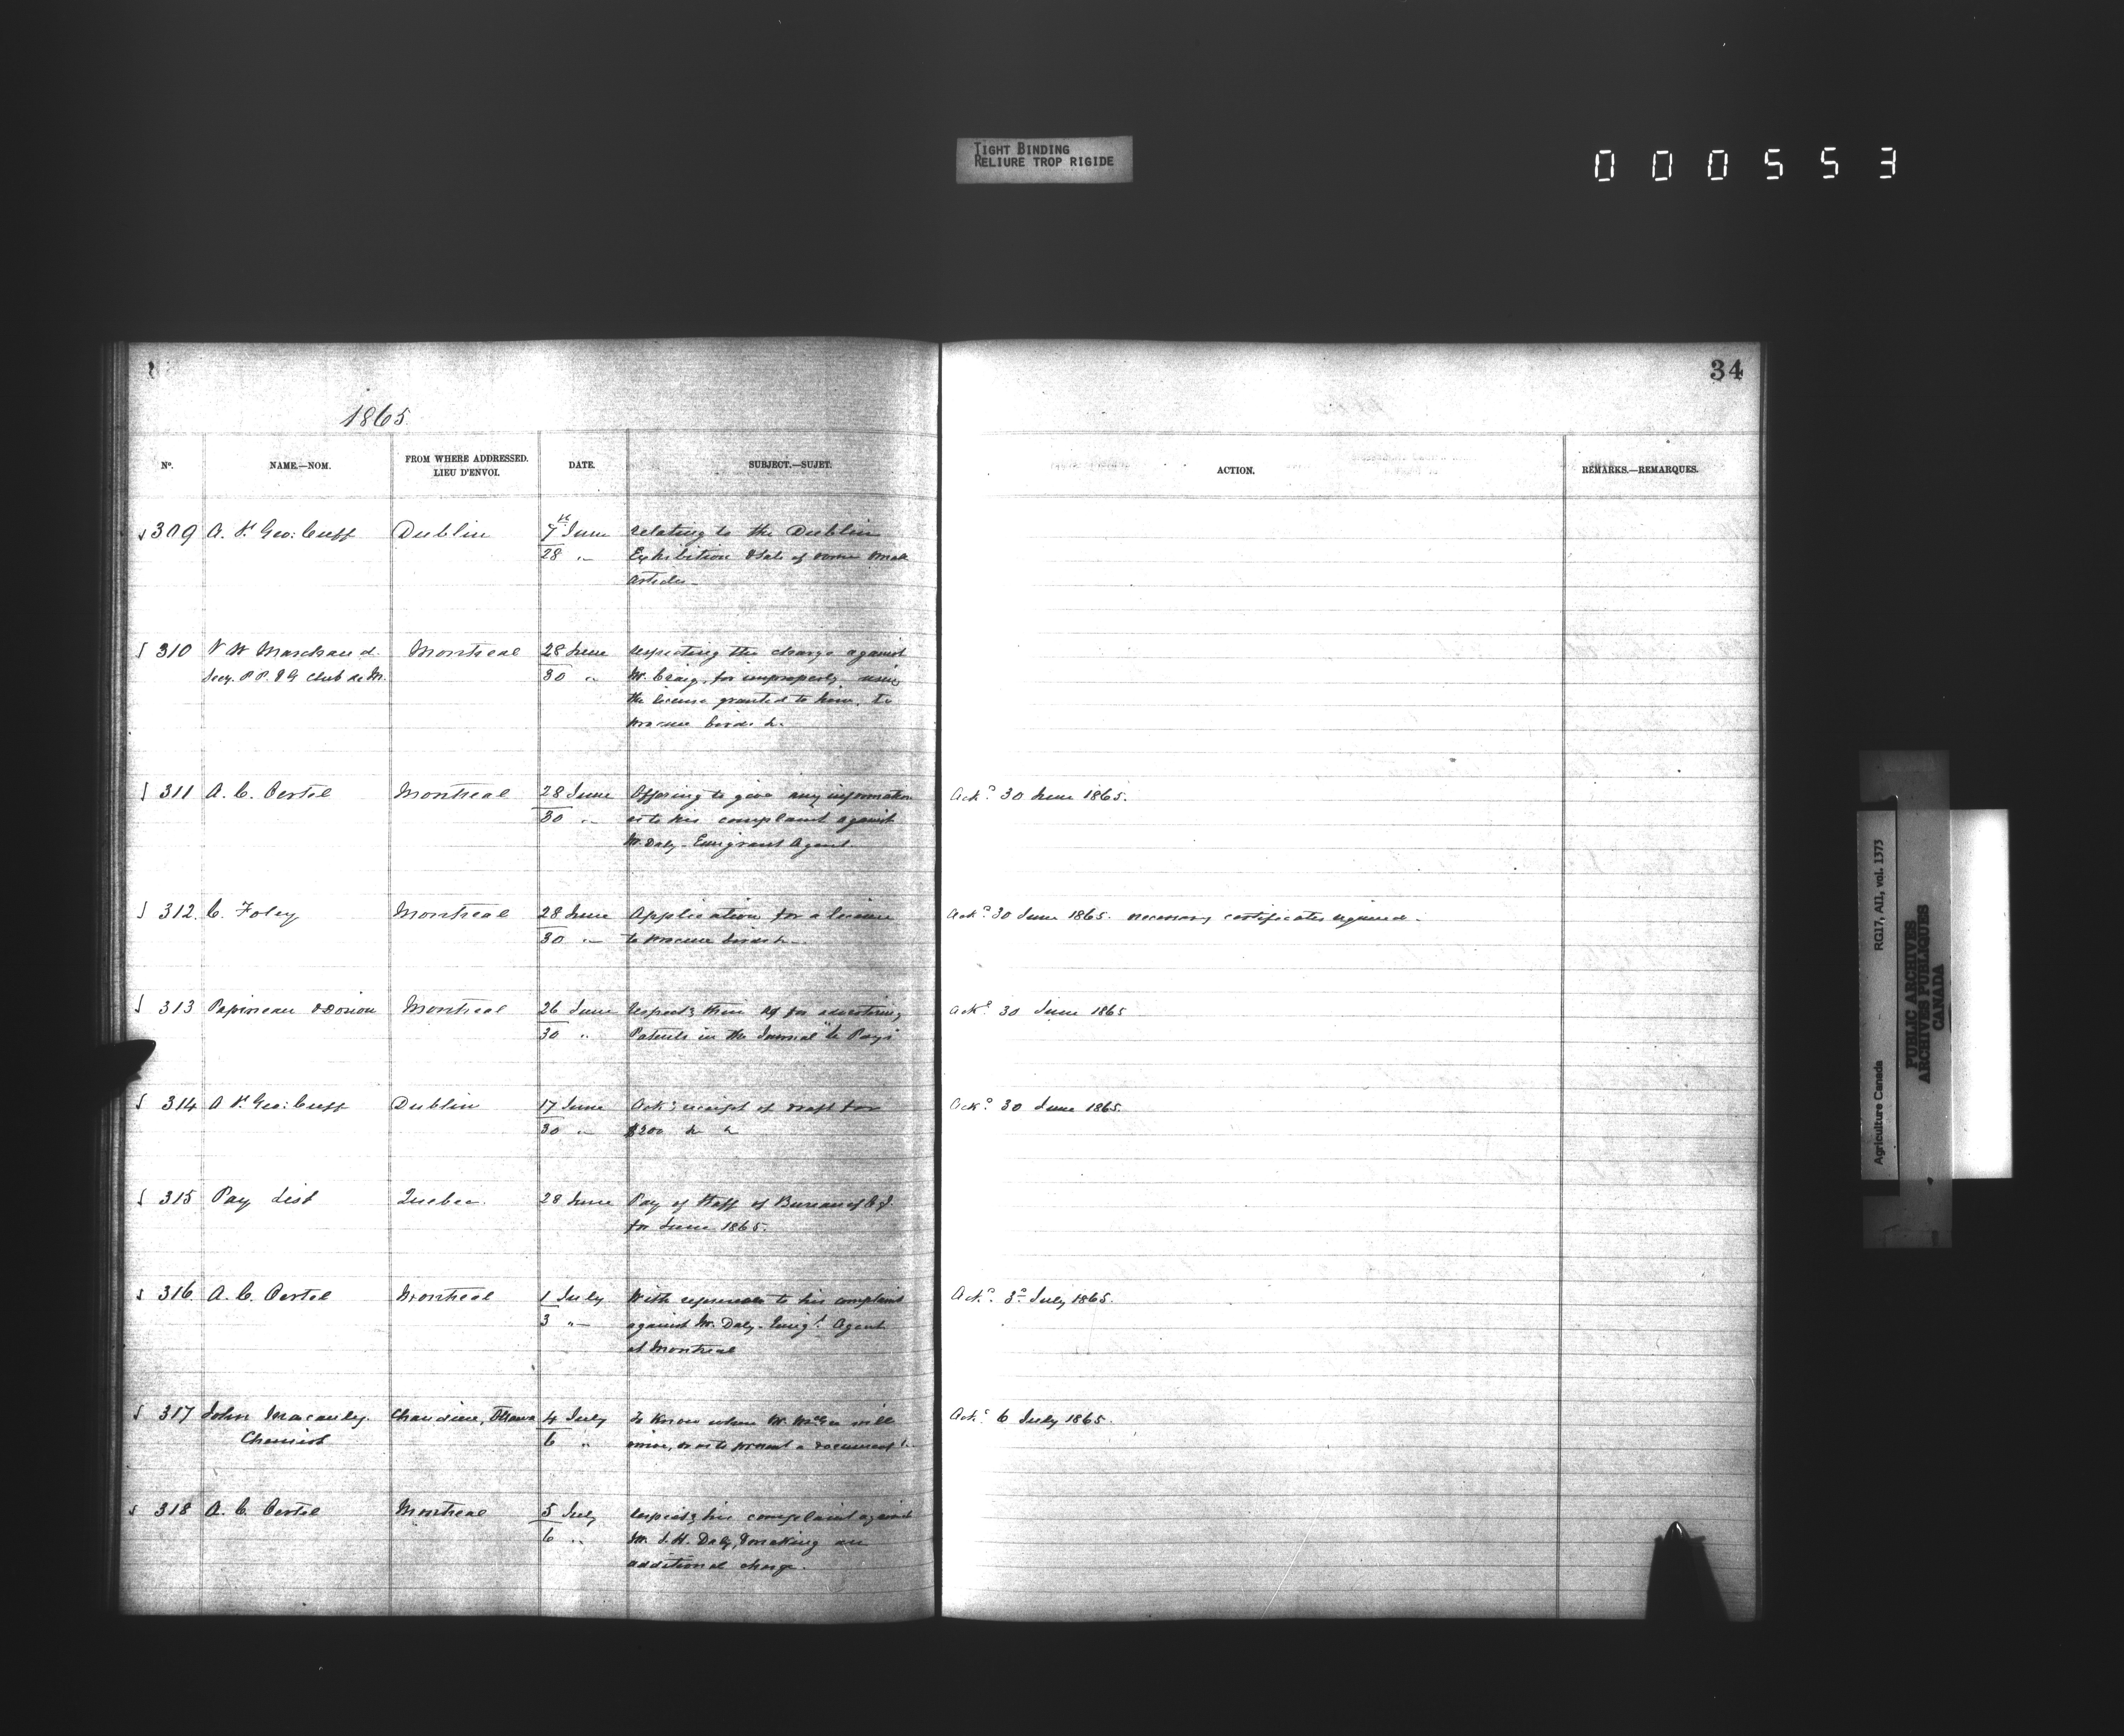 TIGHT BINDING
RELIURE TROP RIGIDE
000553
34
1865
No. NAME.—NOM. FROM WHERE ADDRESSED. LIEU D'ENVOI. DATE. SUBJECT.—SUJET. ACTION. REMARKS.—REMARQUES.
309 A. St Geo: Cuff Dublin 7th June relating to the Dublin
28 " Exhibition & Sale of some
articles
310 Marchand Montreal 28 June respecting the charge against
Secy. Club de M. 30 " Mr. Craig, for improperly using
the license granted to him, to
procure birds &c.
311 A. C. Oertel Montreal 28 June Offering to give any information Ackd. 30 June 1865.
30 " as to his complaint against
Mr. Daly - Emigrant Agent
312 C. Foley Montreal 28 June Application for a license Ackd. 30 June 1865. necessary certificates required.
30 " to procure birds &c.
313 Papineau & Dorion Montreal 26 June respectg their for advertising Ackd. 30 June 1865
30 " Patents in the Journal "Le Pays"
314 A St Geo: Cuff Dublin 17 June Ackg receipt of draft for Ackd. 30 June 1865.
30 " $200 &c &c
315 Pay List Quebec. 28 June Pay of Staff of Bureau of
for June 1865.
316 A. C. Oertel Montreal 1 July With reference to his complaint Ackd. 3d July 1865.
3 " against Mr. Daly - Emigt. Agent
at Montreal
317 John Macauley Chaudiere, Ottawa 4 July To know when Mr. McGee will Ackd. 6 July 1865.
Chemist 6 " arrive, so as to present a document
318 A. C. Oertel Montreal 5 July respectg his complaint against
6 " Mr. J. H. Daly, & making an
additional charge.
Agriculture Canada RG17, AII, vol. 1373
PUBLIC ARCHIVES
ARCHIVES PUBLIQUES
CANADA